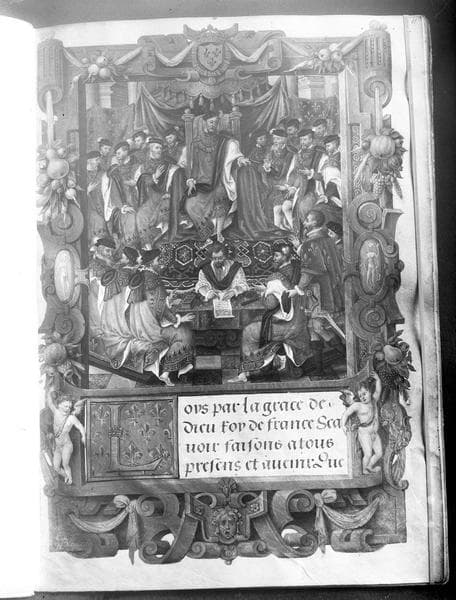 Loys par la grace de
dieu Roy de france Sca
uoir faisons a tous
presens et auenir Que